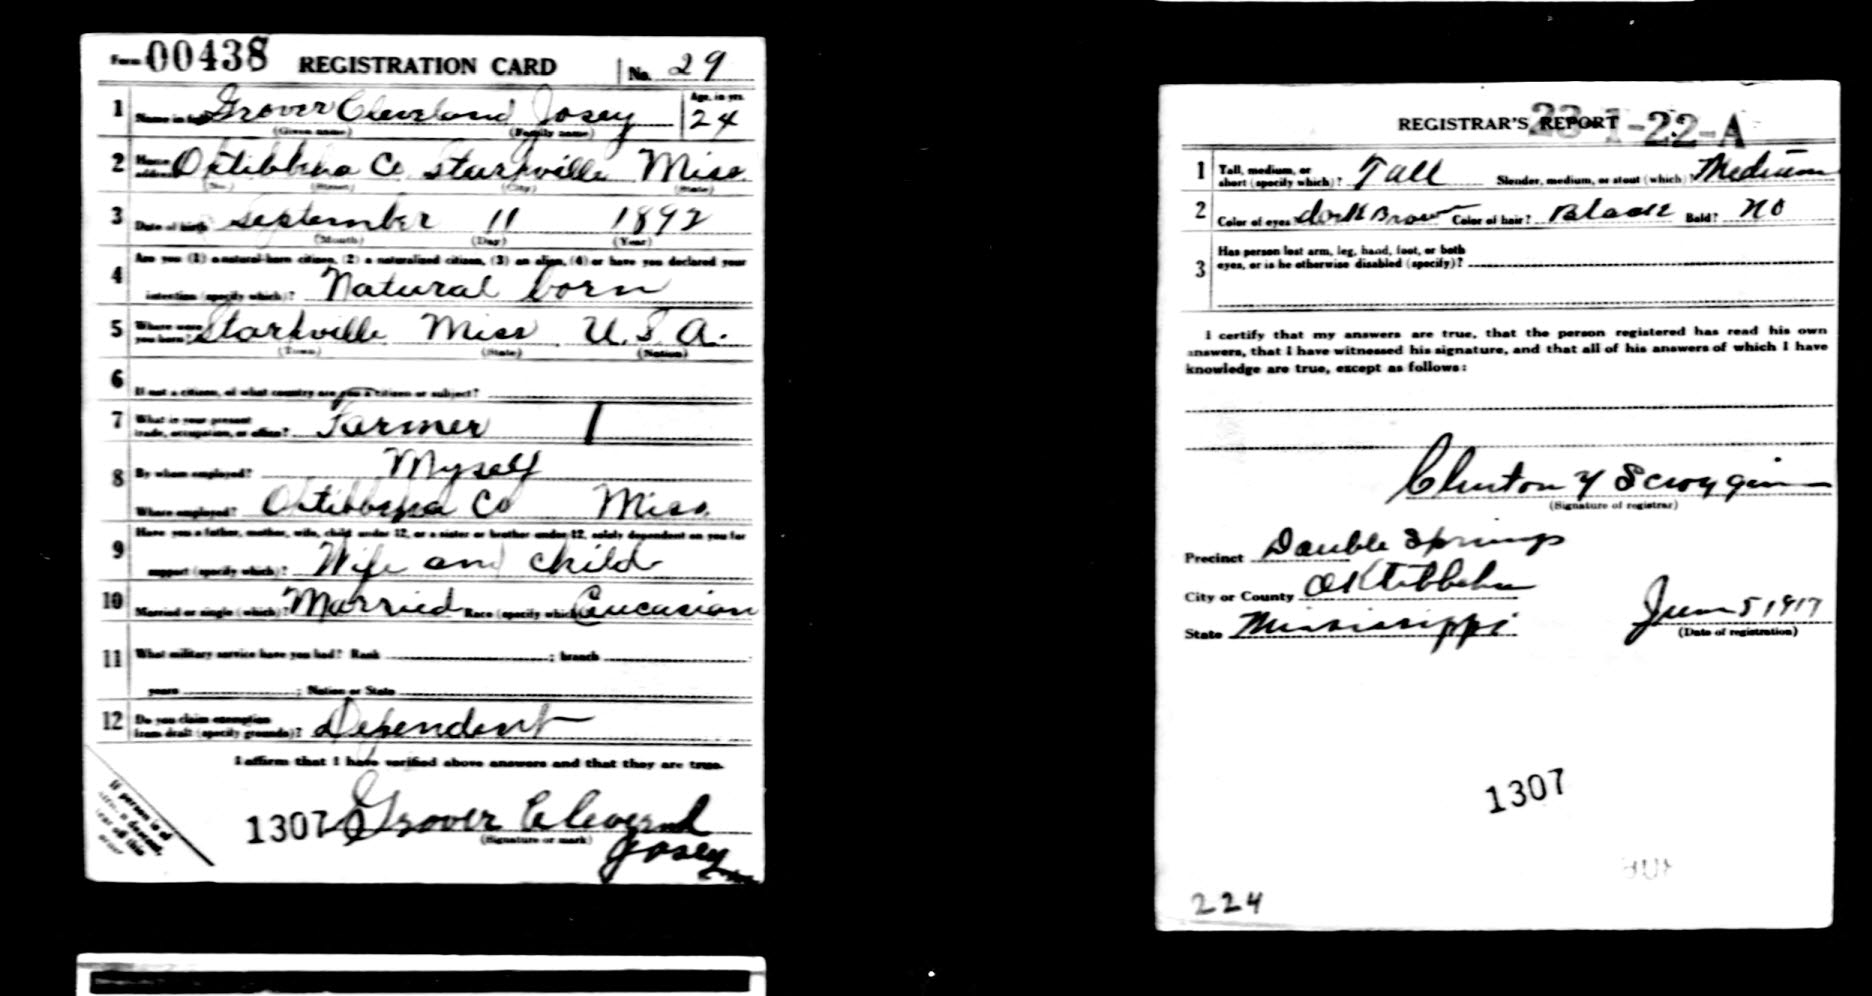 Form 00438 REGISTRATION CARD No. 29
1 Name in full Grover Cleveland Josey Age, in yrs. 24
(Given name) (Family name)
2 Home address Oktibbeha Co Starkville Miss.
(No.) (Street) (City) (State)
3 Date of birth September 11 1892
(Month) (Day) (Year)
4 Are you (1) a natural-born citizen, (2) a naturalized citizen, (3) an alien, (4) or have you declared your
intention (specify which)? Natural born
5 Where were you born? Starkville Miss U.S.A.
(Town) (State) (Nation)
6 If not a citizen, of what country are you a citizen or subject?
7 What is your present trade, occupation, or office? Farmer
8 By whom employed? Myself
Where employed? Oktibbeha Co Miss.
9 Have you a father, mother, wife, child under 12, or a sister or brother under 12, solely dependent on you for
support (specify which)? Wife and child
10 Married or single (which)? Married Race (specify which)? Caucasian
11 What military service have you had? Rank ; branch
years ; Nation or State
12 Do you claim exemption from draft (specify grounds)? Dependent
I affirm that I have verified above answers and that they are true.
1307 Grover Clevernd
(Signature or mark)
Josey
If person is of
descent,
off this
corner
REGISTRAR'S REPORT 23-1-22-A
1 Tall, medium, or short (specify which)? Tall Slender, medium, or stout (which)? Medium
2 Color of eyes dark Brown Color of hair? Black Bald? NO
3 Has person lost arm, leg, hand, foot, or both
eyes, or is he otherwise disabled (specify)?
I certify that my answers are true, that the person registered has read his own
answers, that I have witnessed his signature, and that all of his answers of which I have
knowledge are true, except as follows:
Clinton Y Scroggin
(Signature of registrar)
Precinct Double Springs
City or County Oktibbeha
State Mississippi
June 5 1917
(Date of registration)
1307
224